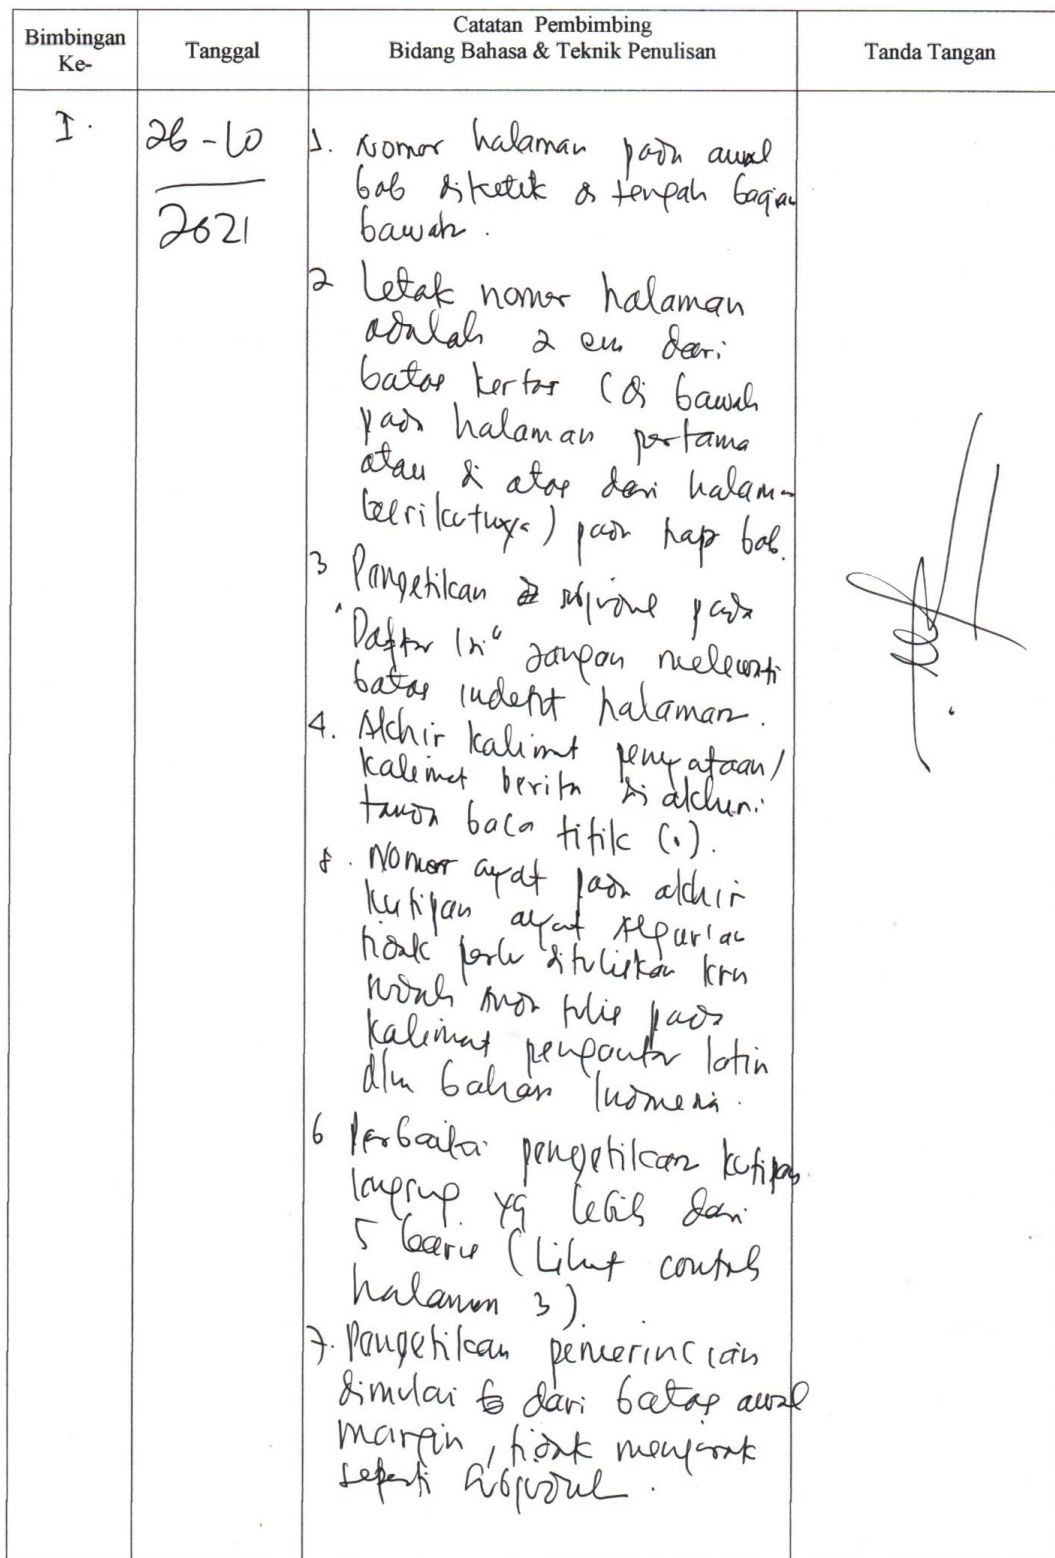 Bimbingan
Ke-
Tanggal
Catatan Pembimbing
Bidang Bahasa & Teknik Penulisan
Tanda Tangan
I.
26-10
2021
1. Nomor halaman pada awal
bab diketik di tengah bagian
bawah.
2 Letak nomor halaman
adalah 2 cm dari
batas kertas (di bawah
pada halaman pertama
atau di atas dari halaman
berikutnya) pada tiap bab.
3 Pengetikan subjudul pada
"Daftar Isi" jangan melewati
batas indent halaman.
4. Akhir kalimat pernyataan/
kalimat berita di akhiri
tanda baca titik (.).
5. Nomor ayat pada akhir
kutipan ayat Alqur'an
tidak perlu dituliskan krn
sudah anda tulis pada
kalimat pengantar latin
dlm bahasa Indonesia.
6 Perbaiki pengetikan kutipan
langsung yg lebih dari
5 baris (Lihat contoh
halaman 3).
7. Pengetikan pemerincian
dimulai dari batas awal
margin, tidak menjorok
seperti subjudul.